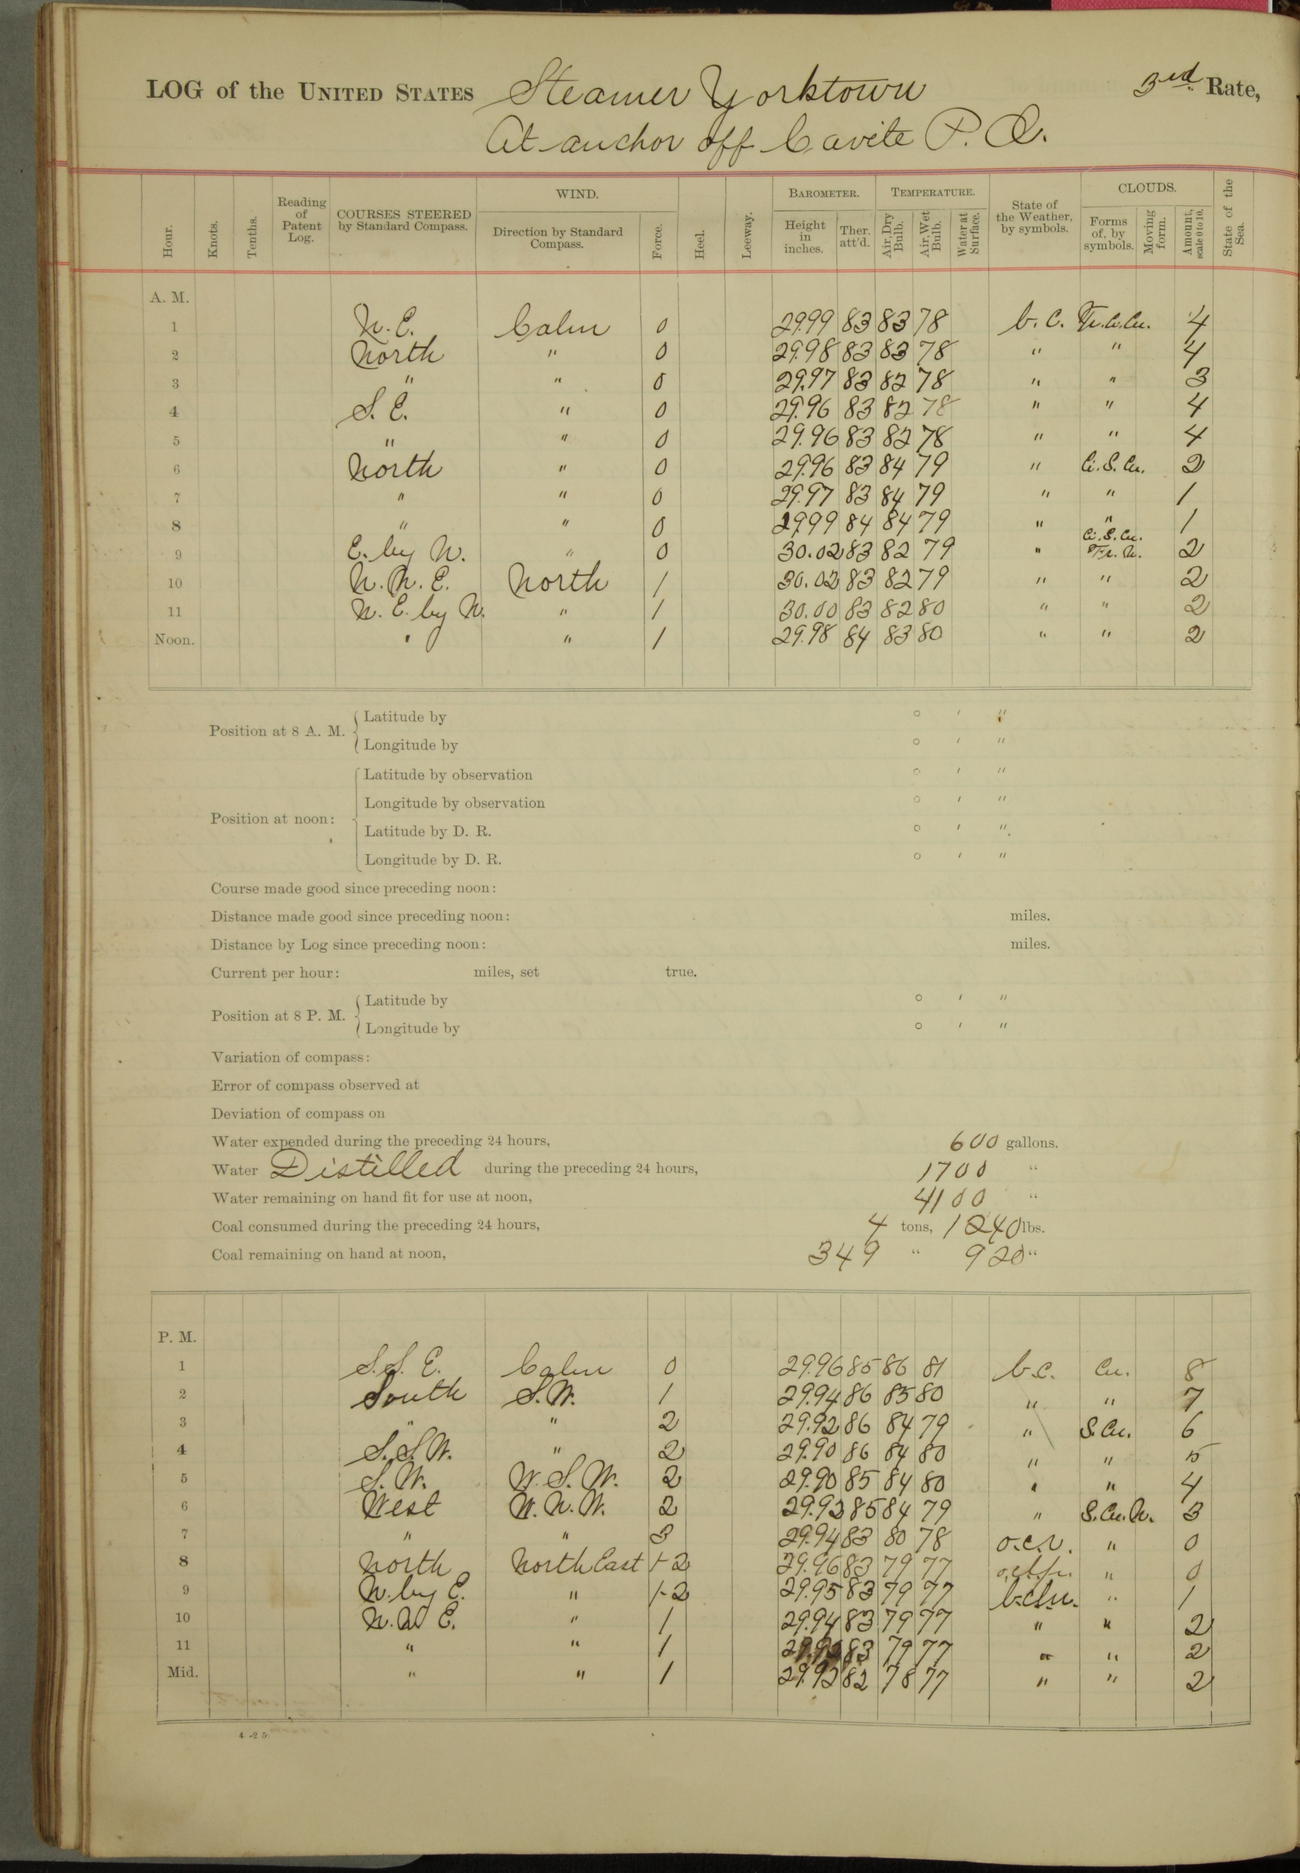 LOG of the UNITED STATES Steamer Yorktown 3rd Rate,
At anchor off Cavite P. I.
Hour. Knots. Tenths. Reading of Patent Log. COURSES STEERED by Standard Compass. WIND. Direction by Standard Compass. Force. Heel. Leeway. BAROMETER. Height in inches. Ther. att'd. TEMPERATURE. Air, Dry Bulb. Air, Wet Bulb. Water at Surface. State of the Weather, by symbols. CLOUDS. Forms of, by symbols. Moving form. Amount, scale 0 to 10. State of the Sea.
A. M.
1 N.E. Calm 0 29.99 83 83 78 b.c. 4
2 North " 0 29.98 83 83 78 " " 4
3 " " 0 29.97 83 82 78 " " 3
4 S.E. " 0 29.96 83 82 78 " " 4
5 " " 0 29.96 83 82 78 " " 4
6 North " 0 29.96 83 84 79 " Ci.S.Cu. 2
7 " " 0 29.97 83 84 79 " " 1
8 " " 0 29.99 84 84 79 " " 1
9 E. by N. " 0 30.02 83 82 79 " Ci.S.Cu. Fr.N. 2
10 N.N.E. North 1 30.02 83 82 79 " " 2
11 N.E. by N. " 1 30.00 83 82 80 " " 2
Noon. " " 1 29.98 84 83 80 " " 2
Position at 8 A. M. Latitude by ° ′ ″
Longitude by ° ′ ″
Latitude by observation ° ′ ″
Longitude by observation ° ′ ″
Position at noon:
Latitude by D. R. ° ′ ″
Longitude by D. R. ° ′ ″
Course made good since preceding noon:
Distance made good since preceding noon: miles.
Distance by Log since preceding noon: miles.
Current per hour: miles, set true.
Position at 8 P. M. Latitude by ° ′ ″
Longitude by ° ′ ″
Variation of compass:
Error of compass observed at
Deviation of compass on
Water expended during the preceding 24 hours, 600 gallons.
Water Distilled during the preceding 24 hours, 1700 "
Water remaining on hand fit for use at noon, 4100 "
Coal consumed during the preceding 24 hours, 4 tons, 1240 lbs.
Coal remaining on hand at noon, 349 " 920 "
P. M.
1 S.S.E. Calm 0 29.96 85 86 81 b.c. Cu. 8
2 South S.W. 1 29.94 86 85 80 " " 7
3 " " 2 29.92 86 84 79 " S.Cu. 6
4 S.S.W. " 2 29.90 86 84 80 " " 5
5 S.W. W.S.W. 2 29.90 85 84 80 " " 4
6 West W.N.W. 2 29.92 85 84 79 " S.Cu.N. 3
7 " " 3 29.94 83 80 78 o.c.r. " 0
8 North North East 1-2 29.96 83 79 77 " 0
9 N. by E. " 1-2 29.95 83 79 77 " 1
10 N.N.E. " 1 29.94 83 79 77 " " 2
11 " " 1 83 79 77 " " 2
Mid. " " 1 29.92 82 78 77 " " 2
4-25